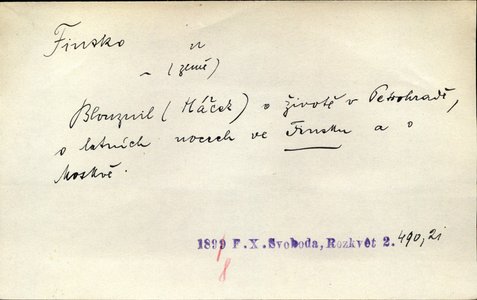 Finsko n
– (země)
Blouznil (Háček) o životě v Petrohradě,
o letních nocech ve Finsku a o
Moskvě.
1899 F.X.Svoboda, Rozkvět 2. 490, 21
8